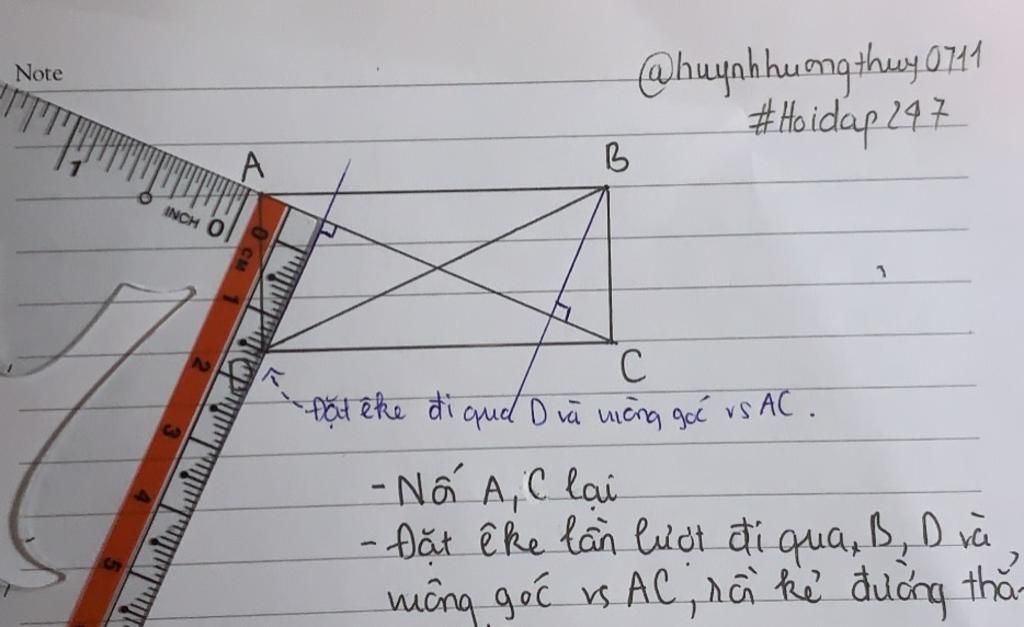 Note
@huynhhuongthuy0711
#Hoidap247
A
B
1
0
INCH
0
0
CM
1
2
3
4
5
C
D
Đặt êke đi qua D và vuông góc vs AC.
- Nối A, C lại
- Đặt êke lần lượt đi qua, B, D và
vuông góc vs AC, rồi kẻ đường thẳ